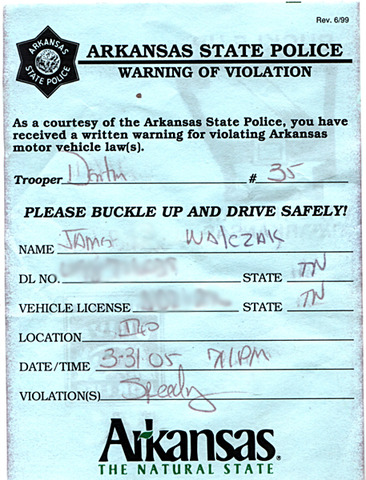 Rev. 6/99
ARKANSAS STATE POLICE
ARKANSAS STATE POLICE
WARNING OF VIOLATION
As a courtesy of the Arkansas State Police, you have
received a written warning for violating Arkansas
motor vehicle law(s).
Trooper # 35
PLEASE BUCKLE UP AND DRIVE SAFELY!
NAME James Walczak
DL NO. STATE TN
VEHICLE LICENSE STATE TN
LOCATION I40
DATE/TIME 3-31-05 PM
VIOLATION(S) Speeding
Arkansas
THE NATURAL STATE